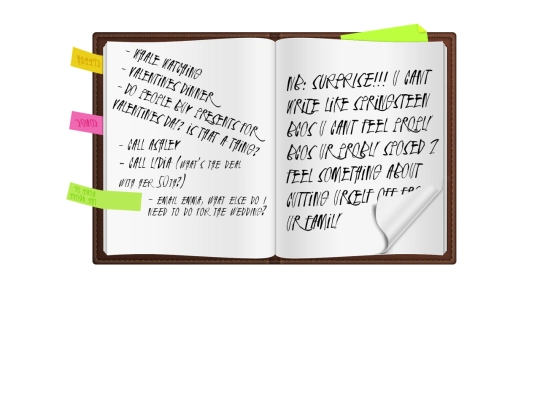 - WHALE WATCHING
- VALENTINES DINNER
- DO PEOPLE BUY PRESENTS FOR
VALENTINES DAY? IS THAT A THING?
- CALL ASHLEY
- CALL LYDIA (WHAT'S THE DEAL
WITH HER 50TH?)
- EMAIL EMMA, WHAT ELSE DO I
NEED TO DO FOR THE WEDDING?
NB: SURPRISE!!! U CANT
WRITE LIKE SPRINGSTEEN
BCOS U CANT FEEL PROPLY
BCOS UR PROBLY SPOSED 2
FEEL SOMETHING ABOUT
CUTTING URSELF OFF FROM
UR FAMILY